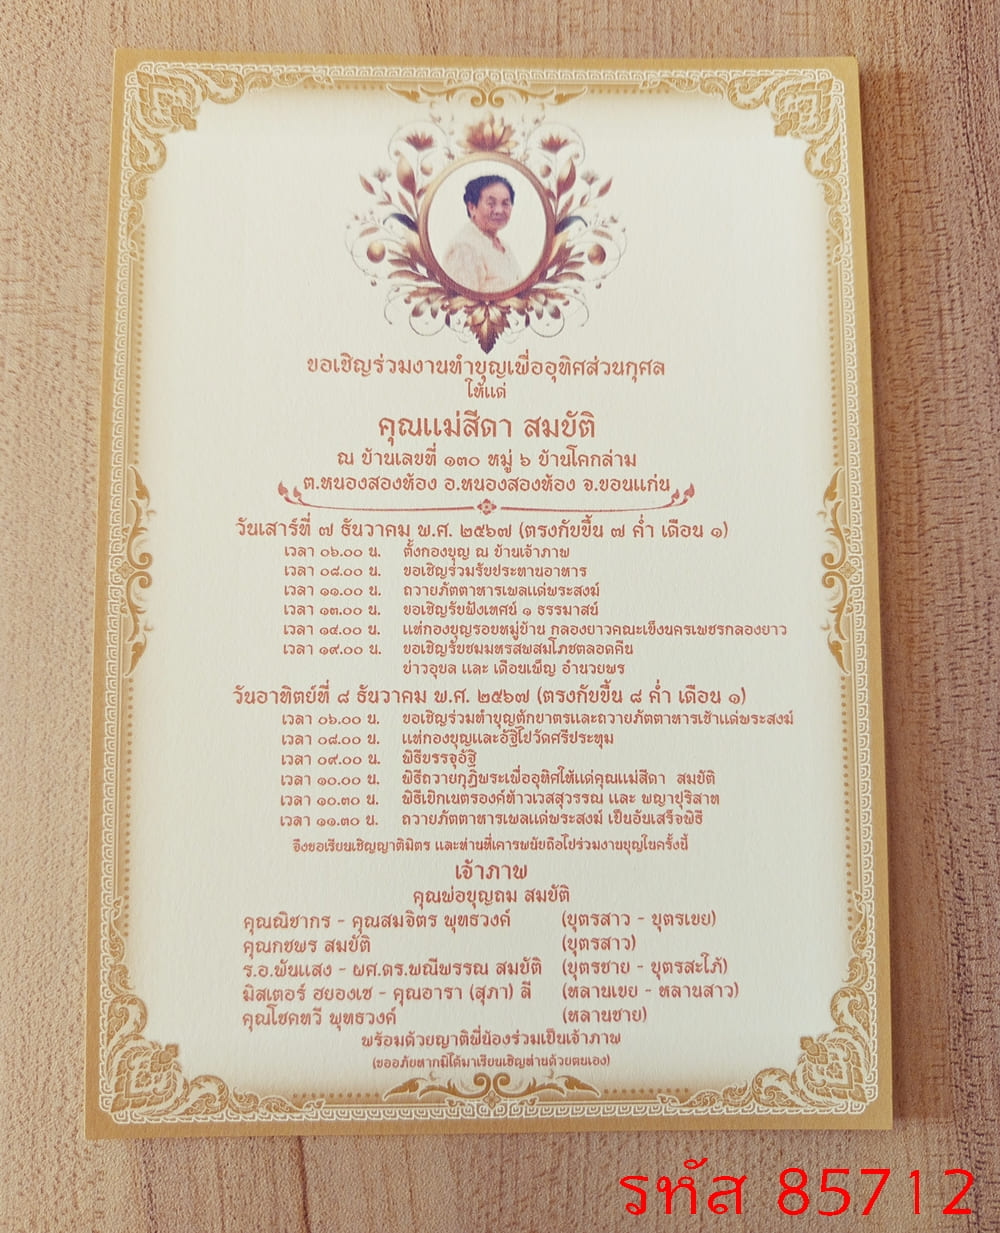 ขอเชิญร่วมงานทำบุญเพื่ออุทิศส่วนกุศล
ให้แด่
คุณแม่สีดา สมบัติ
ณ บ้านเลขที่ ๑๓๐ หมู่ ๖ บ้านโคกล่าม
ต.หนองสองห้อง อ.หนองสองห้อง จ.ขอนแก่น
วันเสาร์ที่ ๗ ธันวาคม พ.ศ. ๒๕๖๗ (ตรงกับขึ้น ๗ ค่ำ เดือน ๑)
เวลา ๐๖.๐๐ น. ตั้งกองบุญ ณ บ้านเจ้าภาพ
เวลา ๐๘.๐๐ น. ขอเชิญร่วมรับประทานอาหาร
เวลา ๑๑.๐๐ น. ถวายภัตตาหารเพลแด่พระสงฆ์
เวลา ๑๓.๐๐ น. ขอเชิญรับฟังเทศน์ ๑ ธรรมาสน์
เวลา ๑๔.๐๐ น. แห่กองบุญรอบหมู่บ้าน กลองยาวคณะเข็งนครเพชรกลองยาว
เวลา ๑๙.๐๐ น. ขอเชิญรับชมมหรสพสมโภชตลอดคืน
ข่าวอุบล และ เดือนเพ็ญ อำนวยพร
วันอาทิตย์ที่ ๘ ธันวาคม พ.ศ. ๒๕๖๗ (ตรงกับขึ้น ๘ ค่ำ เดือน ๑)
เวลา ๐๖.๐๐ น. ขอเชิญร่วมทำบุญตักบาตรและถวายภัตตาหารเช้าแด่พระสงฆ์
เวลา ๐๘.๐๐ น. แห่กองบุญและอัฐิไปวัดศรีประทุม
เวลา ๐๙.๐๐ น. พิธีบรรจุอัฐิ
เวลา ๑๐.๐๐ น. พิธีถวายกุฏิพระเพื่ออุทิศให้แด่คุณแม่สีดา สมบัติ
เวลา ๑๐.๓๐ น. พิธีเบิกเนตรองค์ท้าวเวสสุวรรณ และ พญาปุริสาท
เวลา ๑๑.๓๐ น. ถวายภัตตาหารเพลแด่พระสงฆ์ เป็นอันเสร็จพิธี
จึงขอเรียนเชิญญาติมิตร และท่านที่เคารพนับถือไปร่วมงานบุญในครั้งนี้
เจ้าภาพ
คุณพ่อบุญถม สมบัติ
คุณณิชากร - คุณสมจิตร พุทธวงค์ (บุตรสาว - บุตรเขย)
คุณกชพร สมบัติ (บุตรสาว)
ร.อ.พันแสง - ผศ.ดร.พณีพรรณ สมบัติ (บุตรชาย - บุตรสะใภ้)
มิสเตอร์ ฮยองเช - คุณอารา (สุภา) ลี (หลานเขย - หลานสาว)
คุณโชคทวี พุทธวงค์ (หลานชาย)
พร้อมด้วยญาติพี่น้องร่วมเป็นเจ้าภาพ
(ขออภัยหากมิได้มาเรียนเชิญท่านด้วยตนเอง)
รหัส 85712